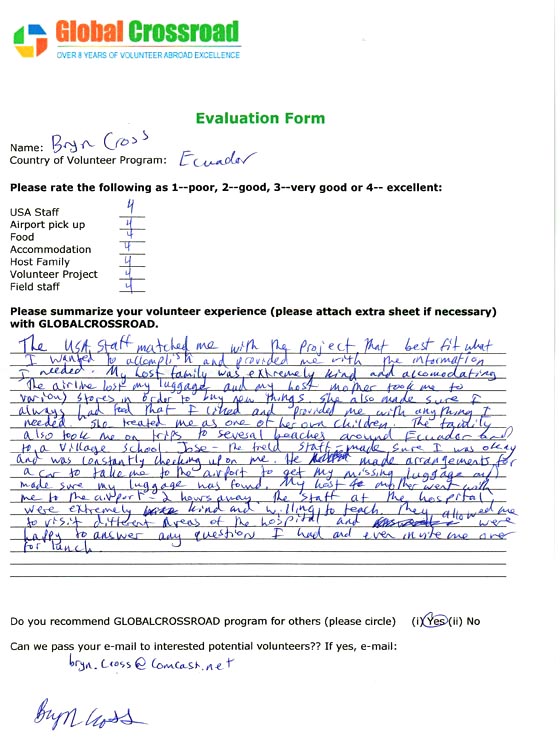 Global Crossroad
OVER 8 YEARS OF VOLUNTEER ABROAD EXCELLENCE
Evaluation Form
Name: Bryn Cross
Country of Volunteer Program: Ecuador
Please rate the following as 1--poor, 2--good, 3--very good or 4-- excellent:
USA Staff 4
Airport pick up 4
Food 4
Accommodation 4
Host Family 4
Volunteer Project 4
Field staff 4
Please summarize your volunteer experience (please attach extra sheet if necessary)
with GLOBALCROSSROAD.
The USA Staff matched me with the project that best fit what
I wanted to accomplish and provided me with the information
I needed. My host family was extremely kind and accomodating
The airline lost my luggage and my host mother took me to
various stores in order to buy new things. She also made sure I
always had food that I liked and provided me with anything I
needed. She treated me as one of her own children. The family
also took me on trips to several beaches around Ecuador and
to a village school. Jose - the field staff - made sure I was okay
and was constantly checking up on me. He made arrangements for
a car to take me to the airport to get my missing luggage and
made sure my luggage was found. My host mother went with
me to the airport - 2 hours away. The staff at the hospital
were extremely kind and willing to teach. They allowed me
to visit different areas of the hospital and were
happy to answer any question I had and even invite me over
for lunch.
Do you recommend GLOBALCROSSROAD program for others (please circle) (i) Yes (ii) No
Can we pass your e-mail to interested potential volunteers?? If yes, e-mail:
bryn.cross@comcast.net
Bryn Cross